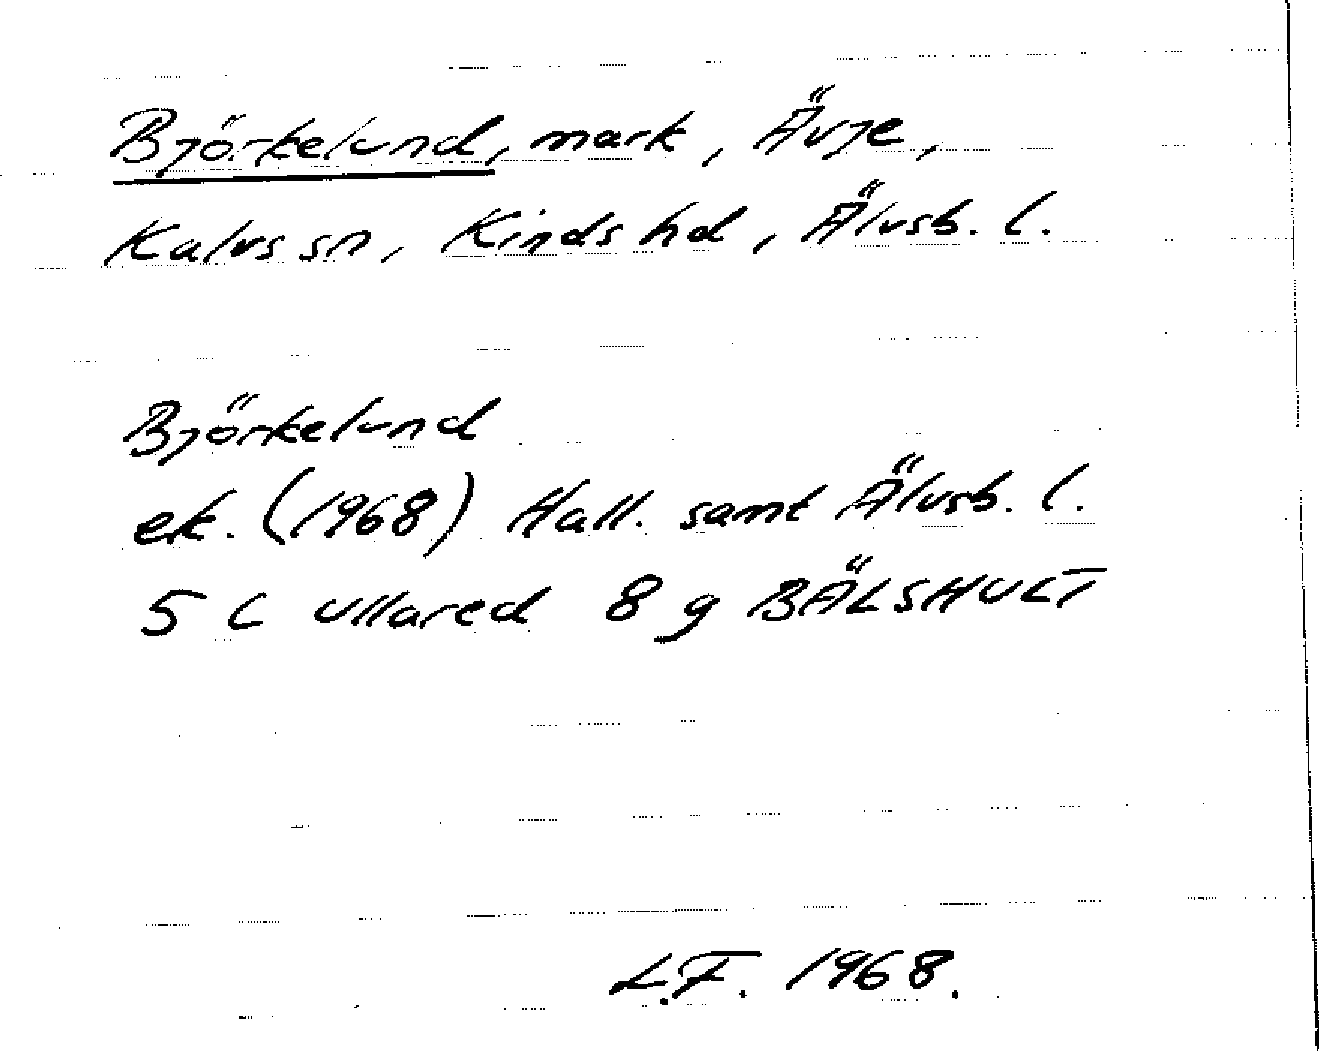 Björkelund, mark, Ävje,
Kalvs sn, Kinds hd, Älvsb. l.
Björkelund
ek. (1968) Hall. samt Älvsb. l.
5 C Ullared 8 g BÄLSHULT
L.F. 1968.